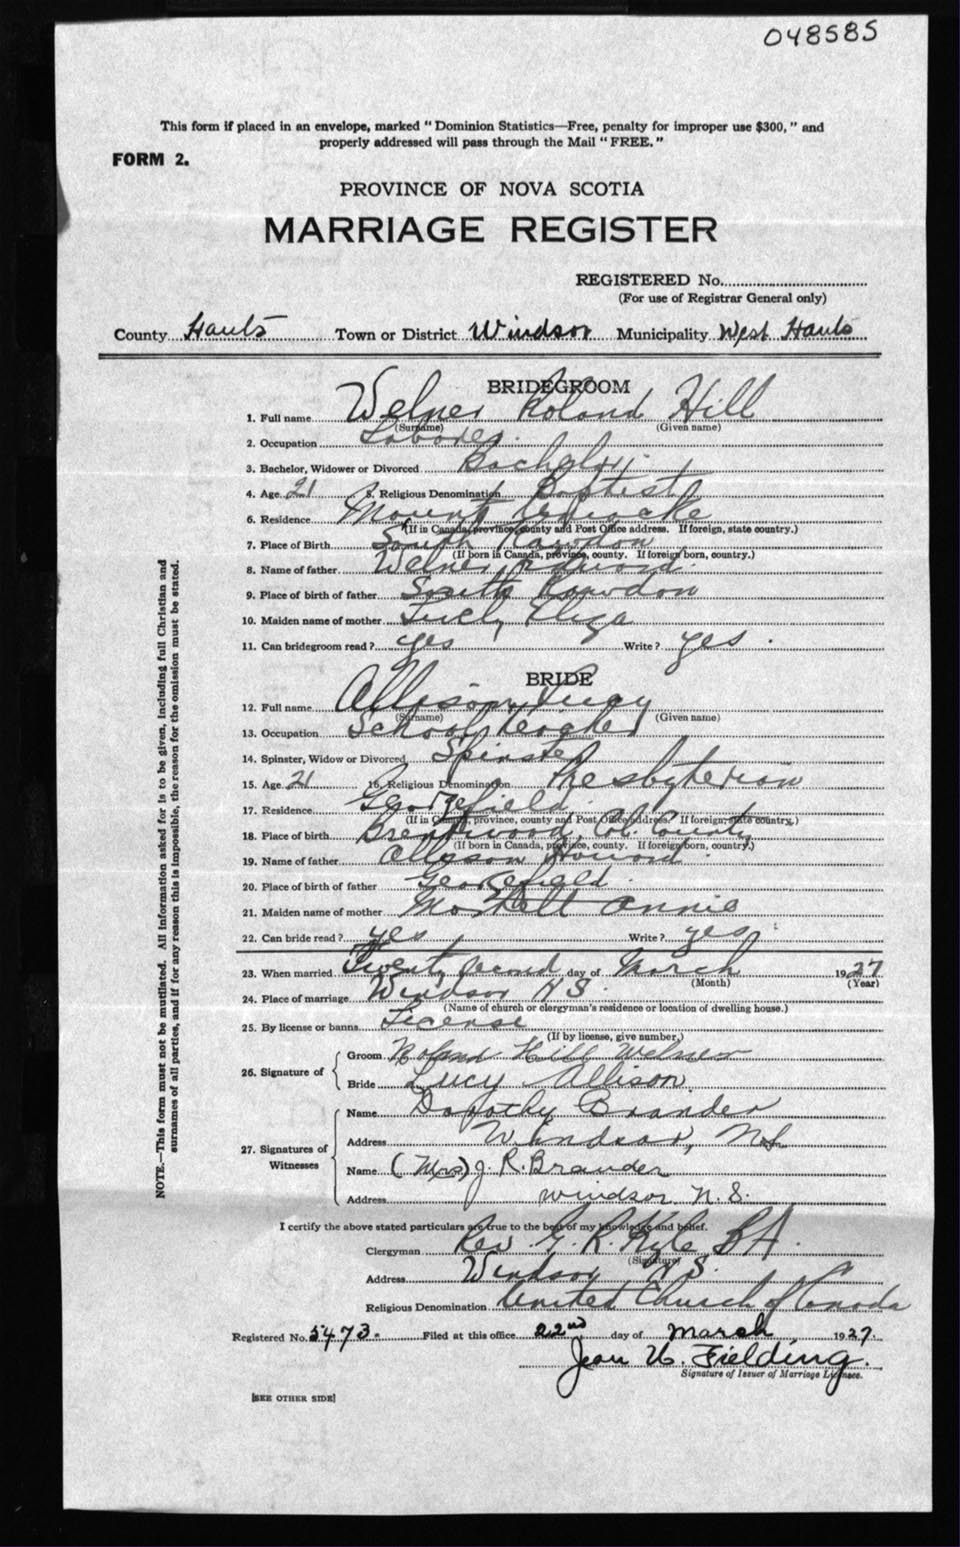 048585
This form if placed in an envelope, marked "Dominion Statistics—Free, penalty for improper use $300," and
properly addressed will pass through the Mail "FREE."
FORM 2.
PROVINCE OF NOVA SCOTIA
MARRIAGE REGISTER
REGISTERED No.
(For use of Registrar General only)
County Hants Town or District Windsor Municipality West Hants
BRIDEGROOM
1. Full name Welner Roland Hill
(Surname) (Given name)
2. Occupation Laborer.
3. Bachelor, Widower or Divorced Bachelor.
4. Age 21 5. Religious Denomination Baptist
6. Residence Mount Uniacke
(If in Canada, province, county and Post Office address. If foreign, state country.)
7. Place of Birth South Rawdon
(If born in Canada, province, county. If foreign born, country.)
8. Name of father Welner Edward.
9. Place of birth of father South Rawdon
10. Maiden name of mother Eliza
11. Can bridegroom read? yes Write? yes.
BRIDE
12. Full name Allison Lucy
(Surname) (Given name)
13. Occupation School Teacher
14. Spinster, Widow or Divorced Spinster
15. Age 21 16. Religious Denomination Presbyterian
17. Residence Georgefield.
(If in Canada, province, county and Post Office address. If foreign, state country.)
18. Place of birth Brentwood, Col. County
(If born in Canada, province, county. If foreign born, country.)
19. Name of father Allison Howard.
20. Place of birth of father Georgefield.
21. Maiden name of mother Annie
22. Can bride read? yes Write? yes
23. When married Twenty second day of March 1927
(Month) (Year)
24. Place of marriage Windsor N S.
(Name of church or clergyman's residence or location of dwelling house.)
25. By license or banns License
(If by license, give number.)
26. Signature of Groom Roland Hill Welner
Bride Lucy Allison.
27. Signatures of Witnesses Name Dorothy Brander
Address Windsor, N.S.
Name (Mrs) J. R. Brander
Address Windsor N.S.
I certify the above stated particulars are true to the best of my knowledge and belief.
Clergyman Rev. G. R. Kyle BA.
(Signature)
Address Windsor N S.
Religious Denomination United Church of Canada
Registered No. 5473. Filed at this office 22nd day of March 1927.
Jean W. Fielding.
Signature of Issuer of Marriage Licenses.
[SEE OTHER SIDE]
NOTE.—This form must not be mutilated. All information asked for is to be given, including full Christian and
surnames of all parties, and if for any reason this is impossible, the reason for the omission must be stated.